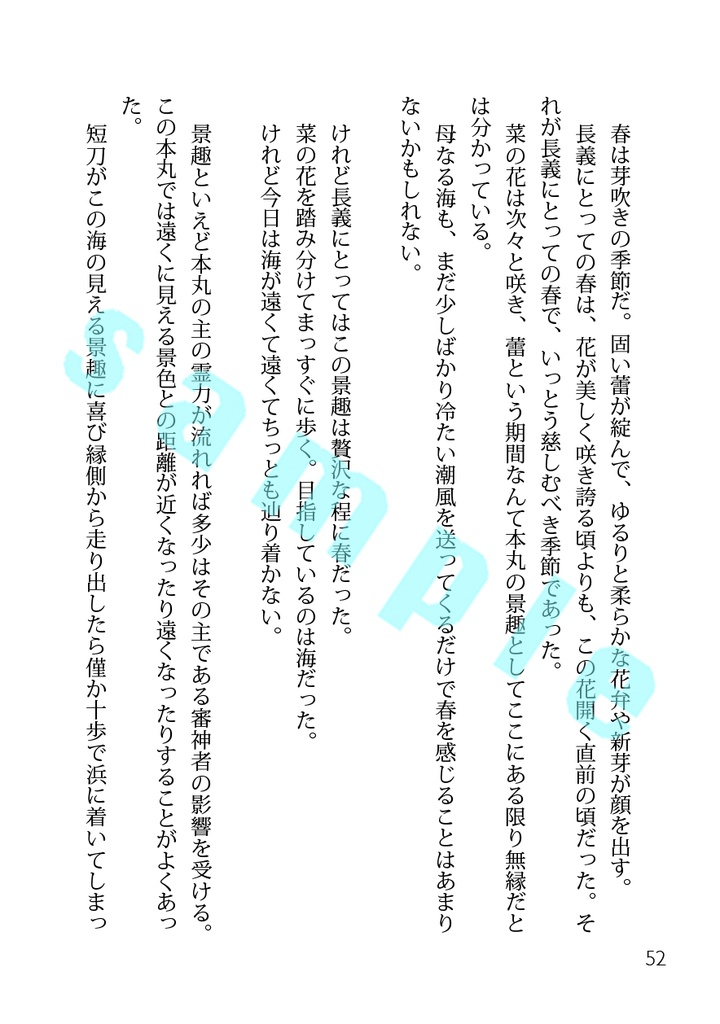 春は芽吹きの季節だ。固い蕾が綻んで、ゆるりと柔らかな花弁や新芽が顔を出す。
長義にとっての春は、花が美しく咲き誇る頃よりも、この花開く直前の頃だった。そ
れが長義にとっての春で、いっとう慈しむべき季節であった。
菜の花は次々と咲き、蕾という期間なんて本丸の景趣としてここにある限り無縁だと
は分かっている。
母なる海も、まだ少しばかり冷たい潮風を送ってくるだけで春を感じることはあまり
ないかもしれない。
けれど長義にとってはこの景趣は贅沢な程に春だった。
菜の花を踏み分けてまっすぐに歩く。目指しているのは海だった。
けれど今日は海が遠くて遠くてちっとも辿り着かない。
景趣といえど本丸の主の霊力が流れれば多少はその主である審神者の影響を受ける。
この本丸では遠くに見える景色との距離が近くなったり遠くなったりすることがよくあっ
た。
短刀がこの海の見える景趣に喜び縁側から走り出したら僅か十歩で浜に着いてしまっ
52
sample